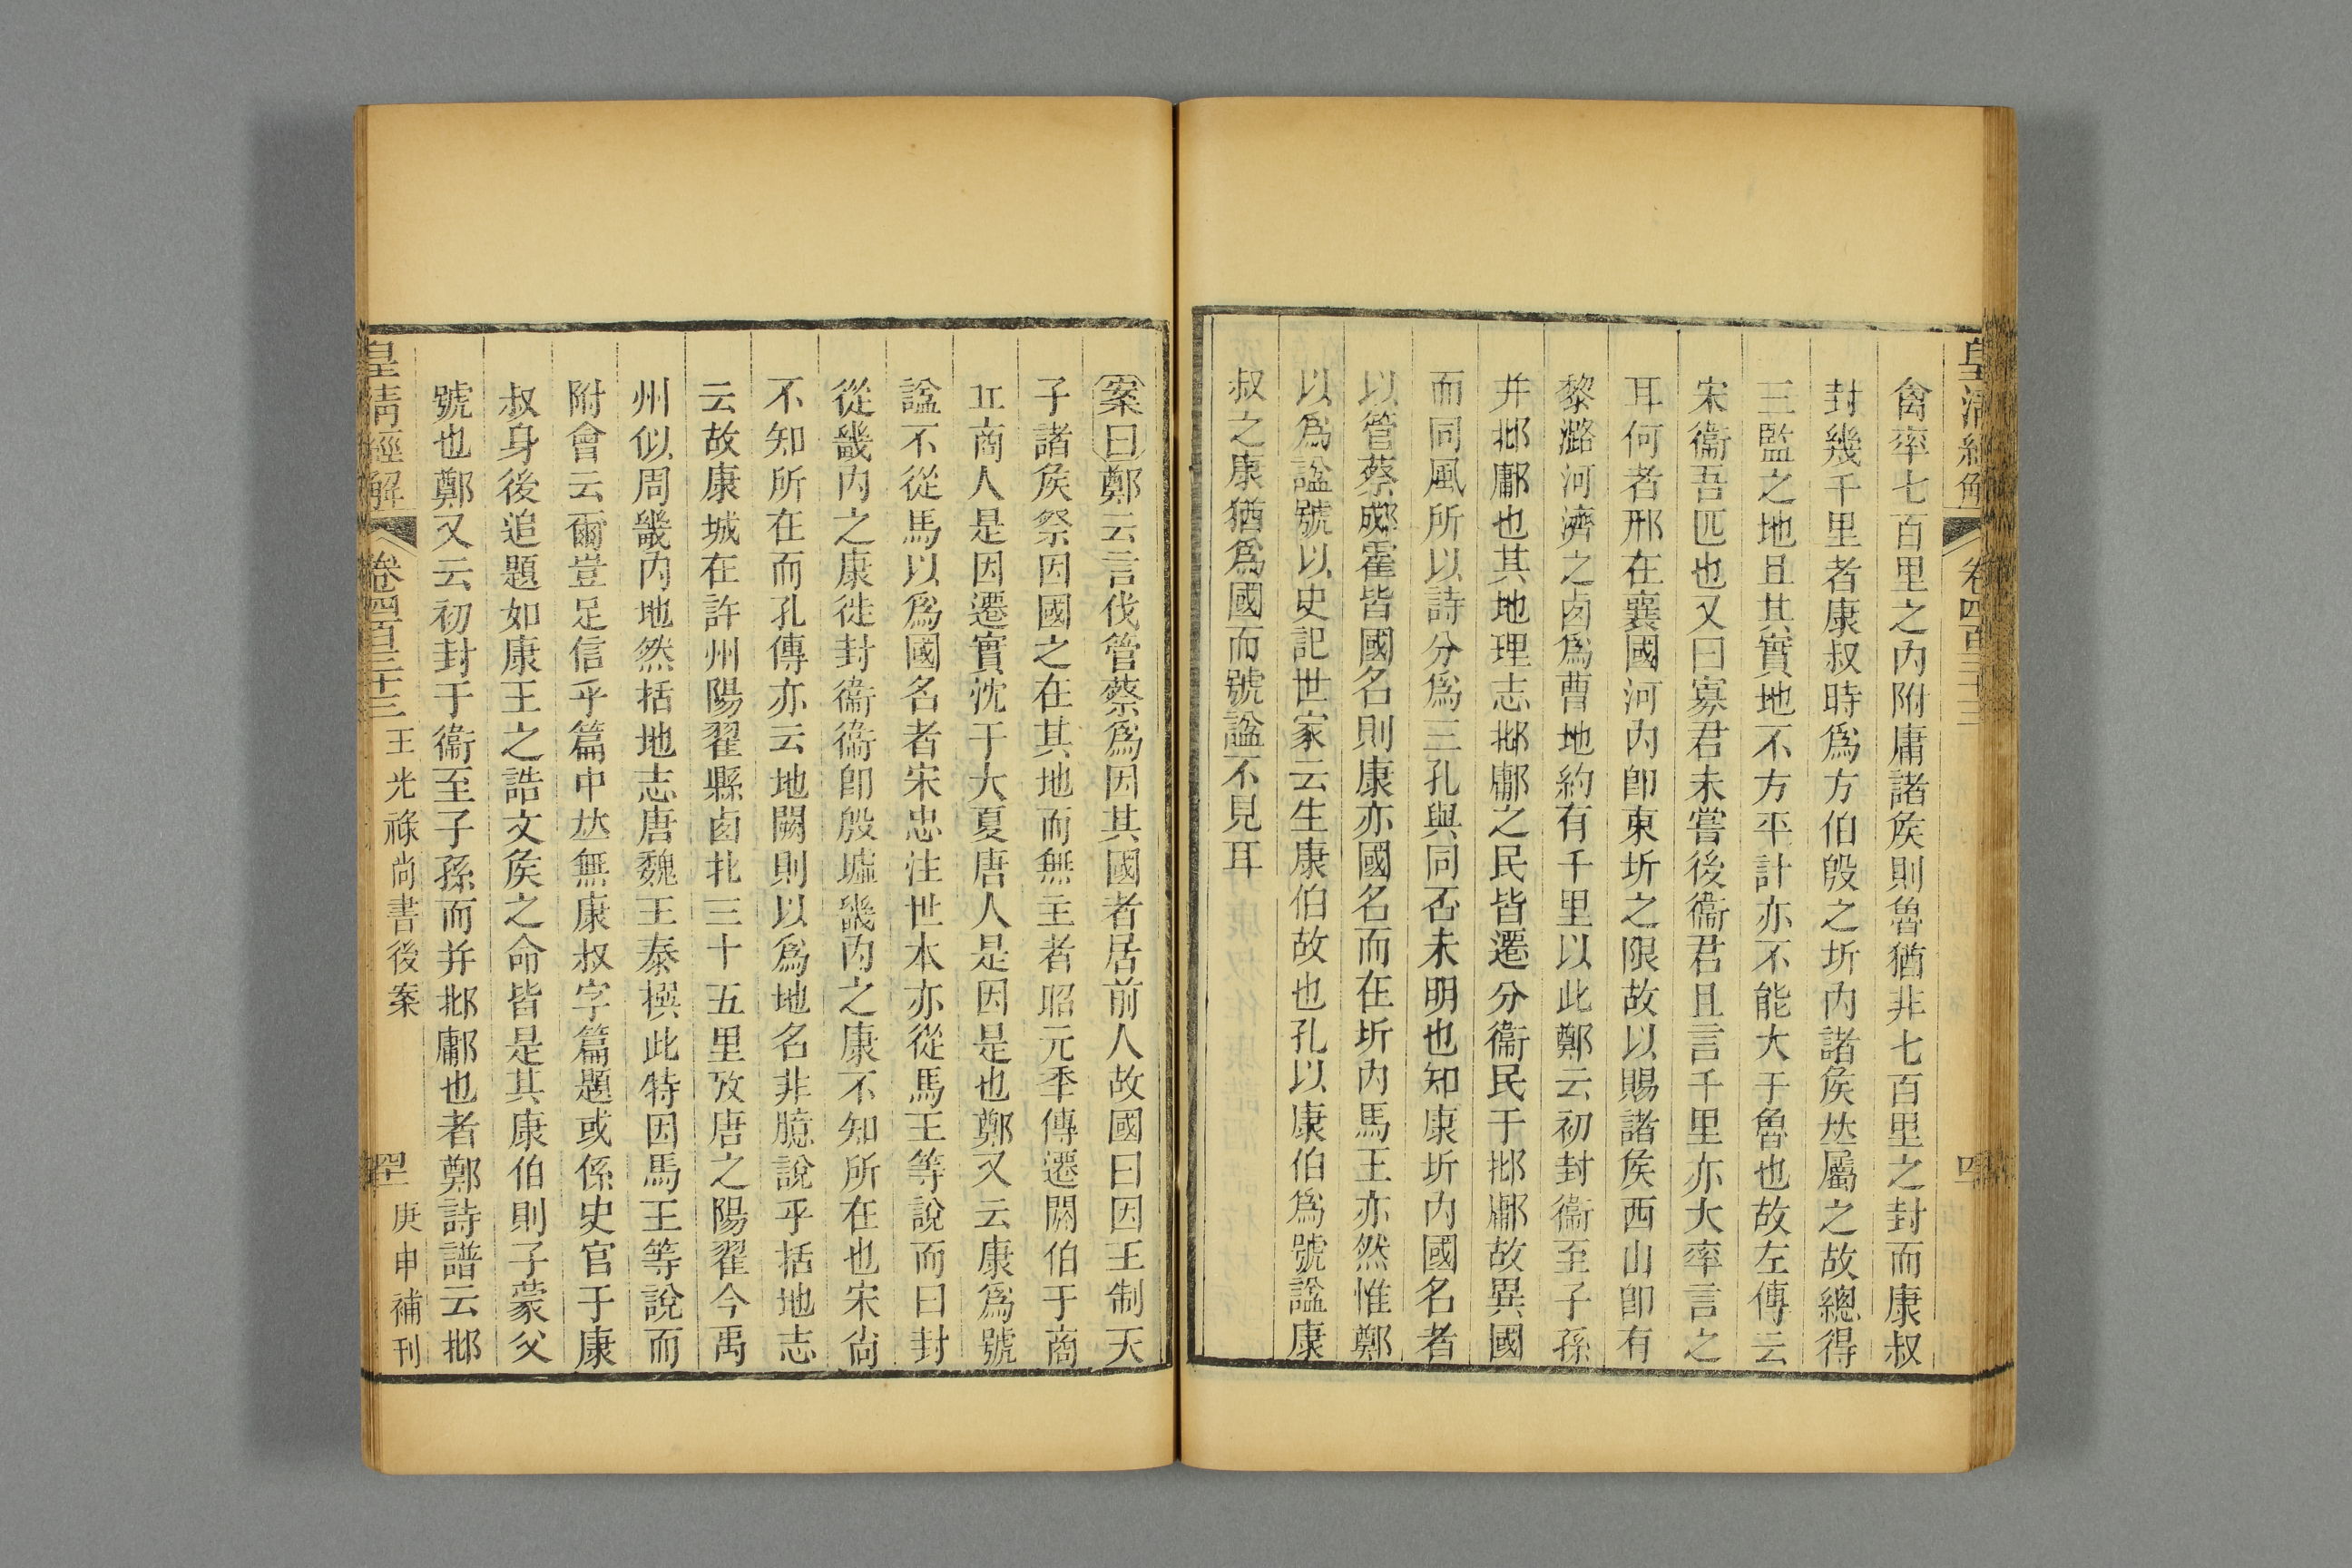 皇清經解 卷四百三十三
禽率七百里之內附庸諸矦則魯猶非七百里之封而康叔
封幾千里者康叔時爲方伯殷之圻內諸矦𠀤屬之故總得
三監之地且其實地不方平計亦不能大于魯也故左傳云
宋衞吾匹也又曰寡君未嘗後衞君且言千里亦大率言之
耳何者邢在襄國河內卽東圻之限故以賜諸矦西山卽有
黎潞河濟之卥爲曹地約有千里以此鄭云初封衞至子孫
并邶鄘也其地理志邶鄘之民皆遷分衞民于邶鄘故異國
而同風所以詩分爲三孔與同否未明也知康圻內國名者
以管蔡郕霍皆國名則康亦國名而在圻內馬王亦然惟鄭
以爲諡號以史記世家云生康伯故也孔以康伯爲號諡康
叔之康猶爲國而號諡不見耳
案曰鄭云言伐管蔡爲因其國者居前人故國曰因王制天
子諸矦祭因國之在其地而無主者昭元秊傳遷閼伯于商
丘商人是因遷實沈于大夏唐人是因是也鄭又云康爲號
諡不從馬以爲國名者宋忠注世本亦從馬王等說而曰封
從畿內之康徙封衞衞卽殷墟畿內之康不知所在也宋尙
不知所在而孔傳亦云地闕則以爲地名非臆說乎括地志
云故康城在許州陽翟縣卥北三十五里攷唐之陽翟今禹
州似周畿內地然括地志唐魏王泰撰此特因馬王等說而
附會云爾豈足信乎篇中𠀤無康叔字篇題或係史官于康
叔身後追題如康王之誥文矦之命皆是其康伯則子蒙父
號也鄭又云初封于衞至子孫而并邶鄘也者鄭詩譜云邶
皇清經解 卷四百三十三 王光祿尚書後案 庚申補刊